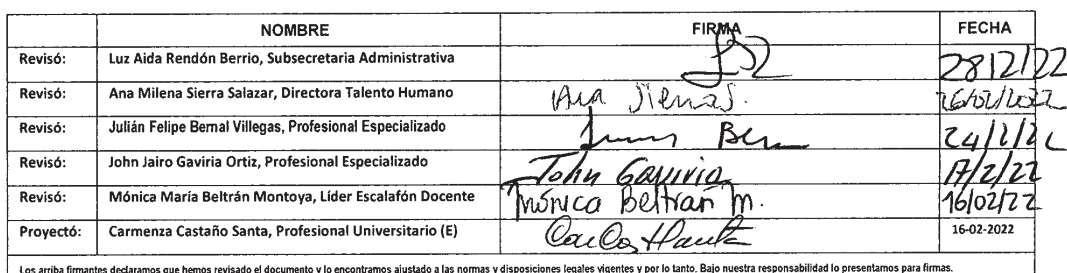 NOMBRE FIRMA FECHA
Revisó: Luz Aida Rendón Berrio, Subsecretaria Administrativa 28/2/22
Revisó: Ana Milena Sierra Salazar, Directora Talento Humano Ana Sierra S. 26/02/2022
Revisó: Julián Felipe Bernal Villegas, Profesional Especializado
Revisó: John Jairo Gaviria Ortiz, Profesional Especializado John Gaviria 17/2/22
Revisó: Mónica María Beltrán Montoya, Líder Escalafón Docente Mónica Beltrán M. 16/02/22
Proyectó: Carmenza Castaño Santa, Profesional Universitario (E) 16-02-2022
Los arriba firmantes declaramos que hemos revisado el documento y lo encontramos ajustado a las normas y disposiciones legales vigentes y por lo tanto. Bajo nuestra responsabilidad lo presentamos para firmas.